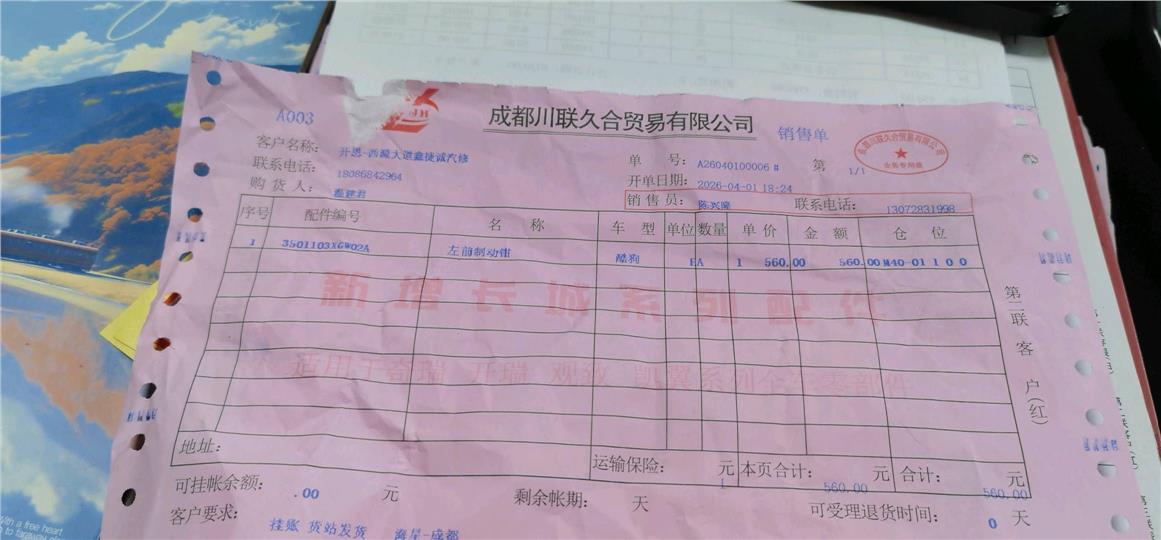 A003
成都川联久合贸易有限公司
销售单
成都川联久合贸易有限公司
业务专用章
客户名称: 开恩-西源大道鑫捷诚汽修
单 号: A26040100006 # 第 1/1
联系电话: 18086842964
开单日期: 2026-04-01 18:24
购 货 人:
销 售 员: 陈兴隆 联系电话: 13072831998
序号 配件编号 名 称 车 型 单位 数量 单 价 金 额 仓 位
1 3501103XGW02A 左前制动钳 酷狗 EA 1 560.00 560.00 M40-01 1 0 0
新增长城系列配件
适用于奇瑞 开瑞 观致 凯翼系列全车零部件
第二联 客 户(红)
地址:
运输保险: 元 本页合计: 元 合计: 元
1 560.00 560.00
可挂帐余额: .00 元 剩余帐期: 天 可受理退货时间: 0 天
客户要求: 挂账 货站发货 海星-成都
With a free heart